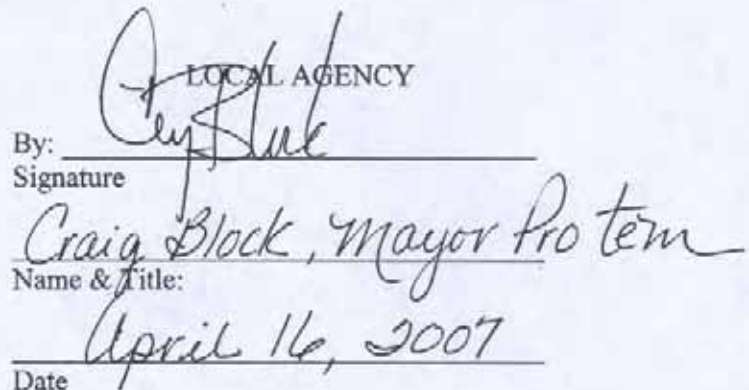 LOCAL AGENCY
By: Craig Block
Signature
Craig Block, Mayor Pro tem
Name & Title:
April 16, 2007
Date